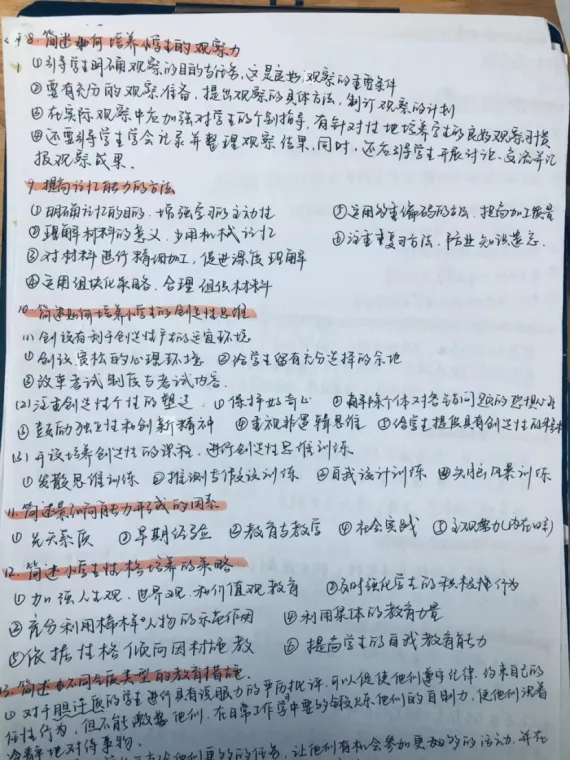 8. 简述如何培养小学生的观察力
①引导学生明确观察的目的与任务，这是良好观察的重要条件
②要有充分的观察准备，提出观察的具体方法，制订观察的计划
③在实际观察中应加强对学生的个别指导，有针对性地培养学生的良好观察习惯
④还要引导学生学会记录并整理观察结果，同时，还应引导学生开展讨论、交流并汇
报观察成果.
9. 提高记忆能力的方法
①明确记忆的目的，增强学习的主动性 ⑤运用多重编码的方法，提高加工质量
②理解材料的意义，少用机械记忆 ⑥注重复习方法，防止知识遗忘.
③对材料进行精细加工，促进深度理解
④运用组块化策略，合理组织材料
10. 简述如何培养小学生的创造性思维
(1)创设有利于创造性产生的适宜环境
①创设宽松的心理环境 ②给学生留有充分选择的余地
③改革考试制度与考试内容.
(2)注重创造性个性的塑造. ①保护好奇心 ②解除个体对答错问题的恐惧心理
③鼓励独立性和创新精神 ④重视非逻辑思维 ⑤给学生提供具有创造性的榜样
(3)开设培养创造性的课程，进行创造性思维训练
①发散思维训练 ②推测与假设训练 ③自我设计训练 ④头脑风暴训练
11. 简述影响能力形成的因素
①先天素质 ②早期经验 ③教育与教学 ④社会实践 ⑤主观努力(内在因素)
12. 简述小学生性格培养的策略
①加强人生观，世界观，和价值观教育 ②及时强化学生的积极性行为
③充分利用榜样人物的示范作用 ④利用集体的教育力量
⑤依据性格倾向因材施教 ⑥提高学生的自我教育能力
13. 简述不同气质类型的教育措施.
①对于胆汁质的学生进行具有说服力的严厉批评，可以促使他们遵守纪律，约束自己的
任性行为，但不能激怒他们，在日常工作学中要多锻炼他们的自制力，使他们沉着
冷静地对待事物.
更多的任务，让他们有机会参加更多的活动，并在